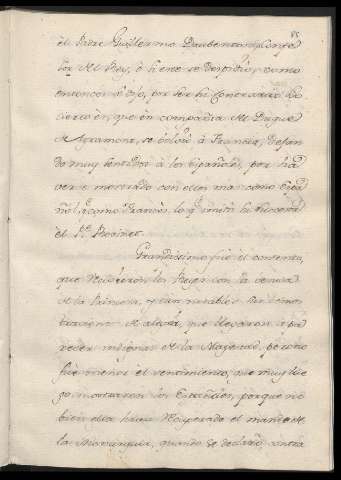 el Padre Guillermo Daubenton, Confe
sor del Rey, ò hiciese se despidio, como
entonces se dijo, por ser su
cierto es, que en compañia del Duque
de Agramont, se bolviò à Francia, dejan
do muy sentidos à los Españoles, por ha
verse mostrado con ellos mas como Espa
ñol, q.e como Frances, lo q.e imitò su
el P.e Robinet.
Grandissimo fuè el contento,
que recivieron los Reyes con la venida
de la Princesa, y tan notables las demos
traciones de alegria, que llegaron à pa
recer indignas de la Magestad, pero no
fue menos el sentimiento, que muy lue
go mostraron los Españoles, porque no
bien ella havia recuperado el mando de
la Monarquia, quando se declarò contra